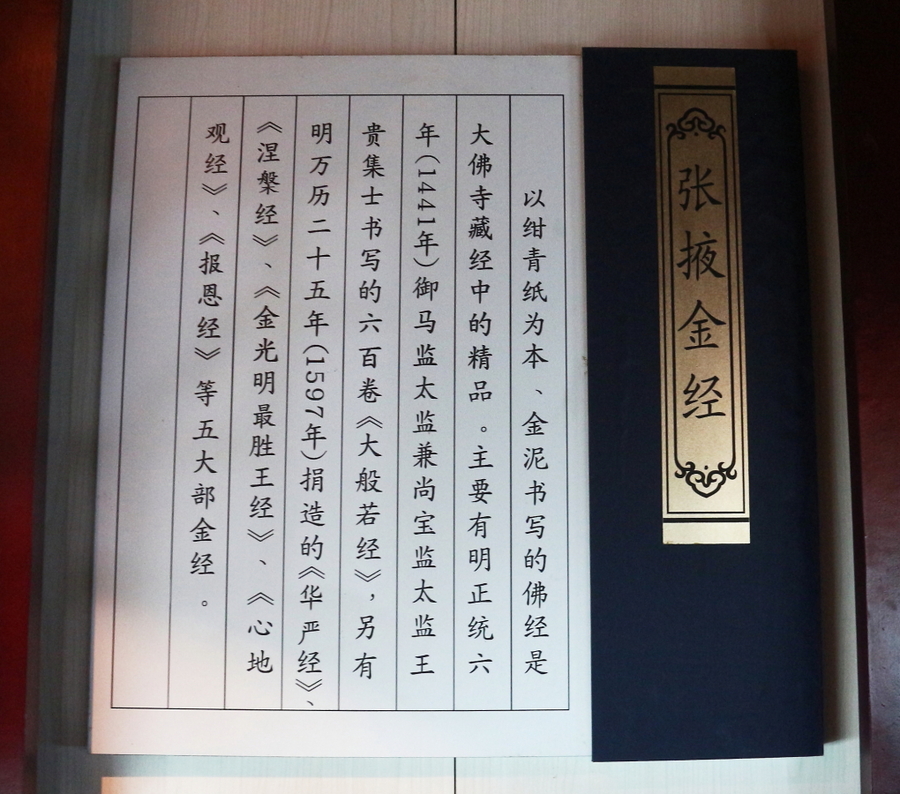 张掖金经
以绀青纸为本、金泥书写的佛经是
大佛寺藏经中的精品。主要有明正统六
年(1441年)御马监太监兼尚宝监太监王
贵集士书写的六百卷《大般若经》，另有
明万历二十五年(1597年)捐造的《华严经》、
《涅槃经》、《金光明最胜王经》、《心地
观经》、《报恩经》等五大部金经。